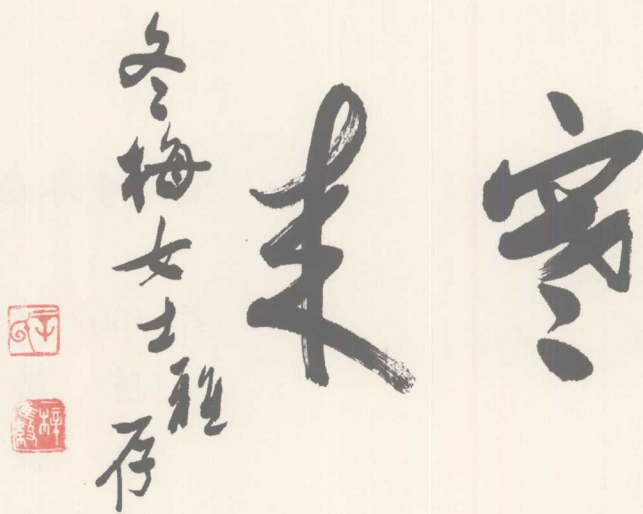 寒
来
冬梅女士雅存